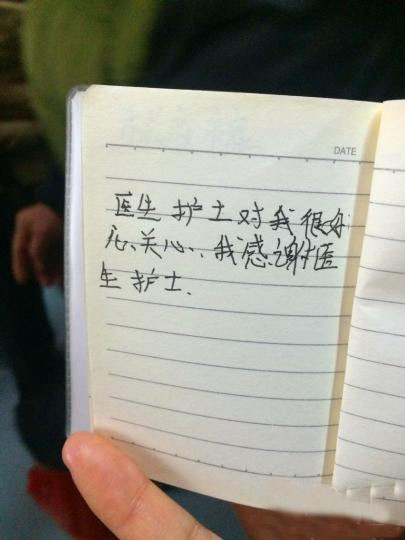 DATE
医生护士对我很好
心关心、我感谢医
生护士.